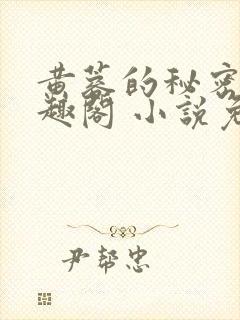 黄蓉的秘密
趣閣 小說免
尹幫忠